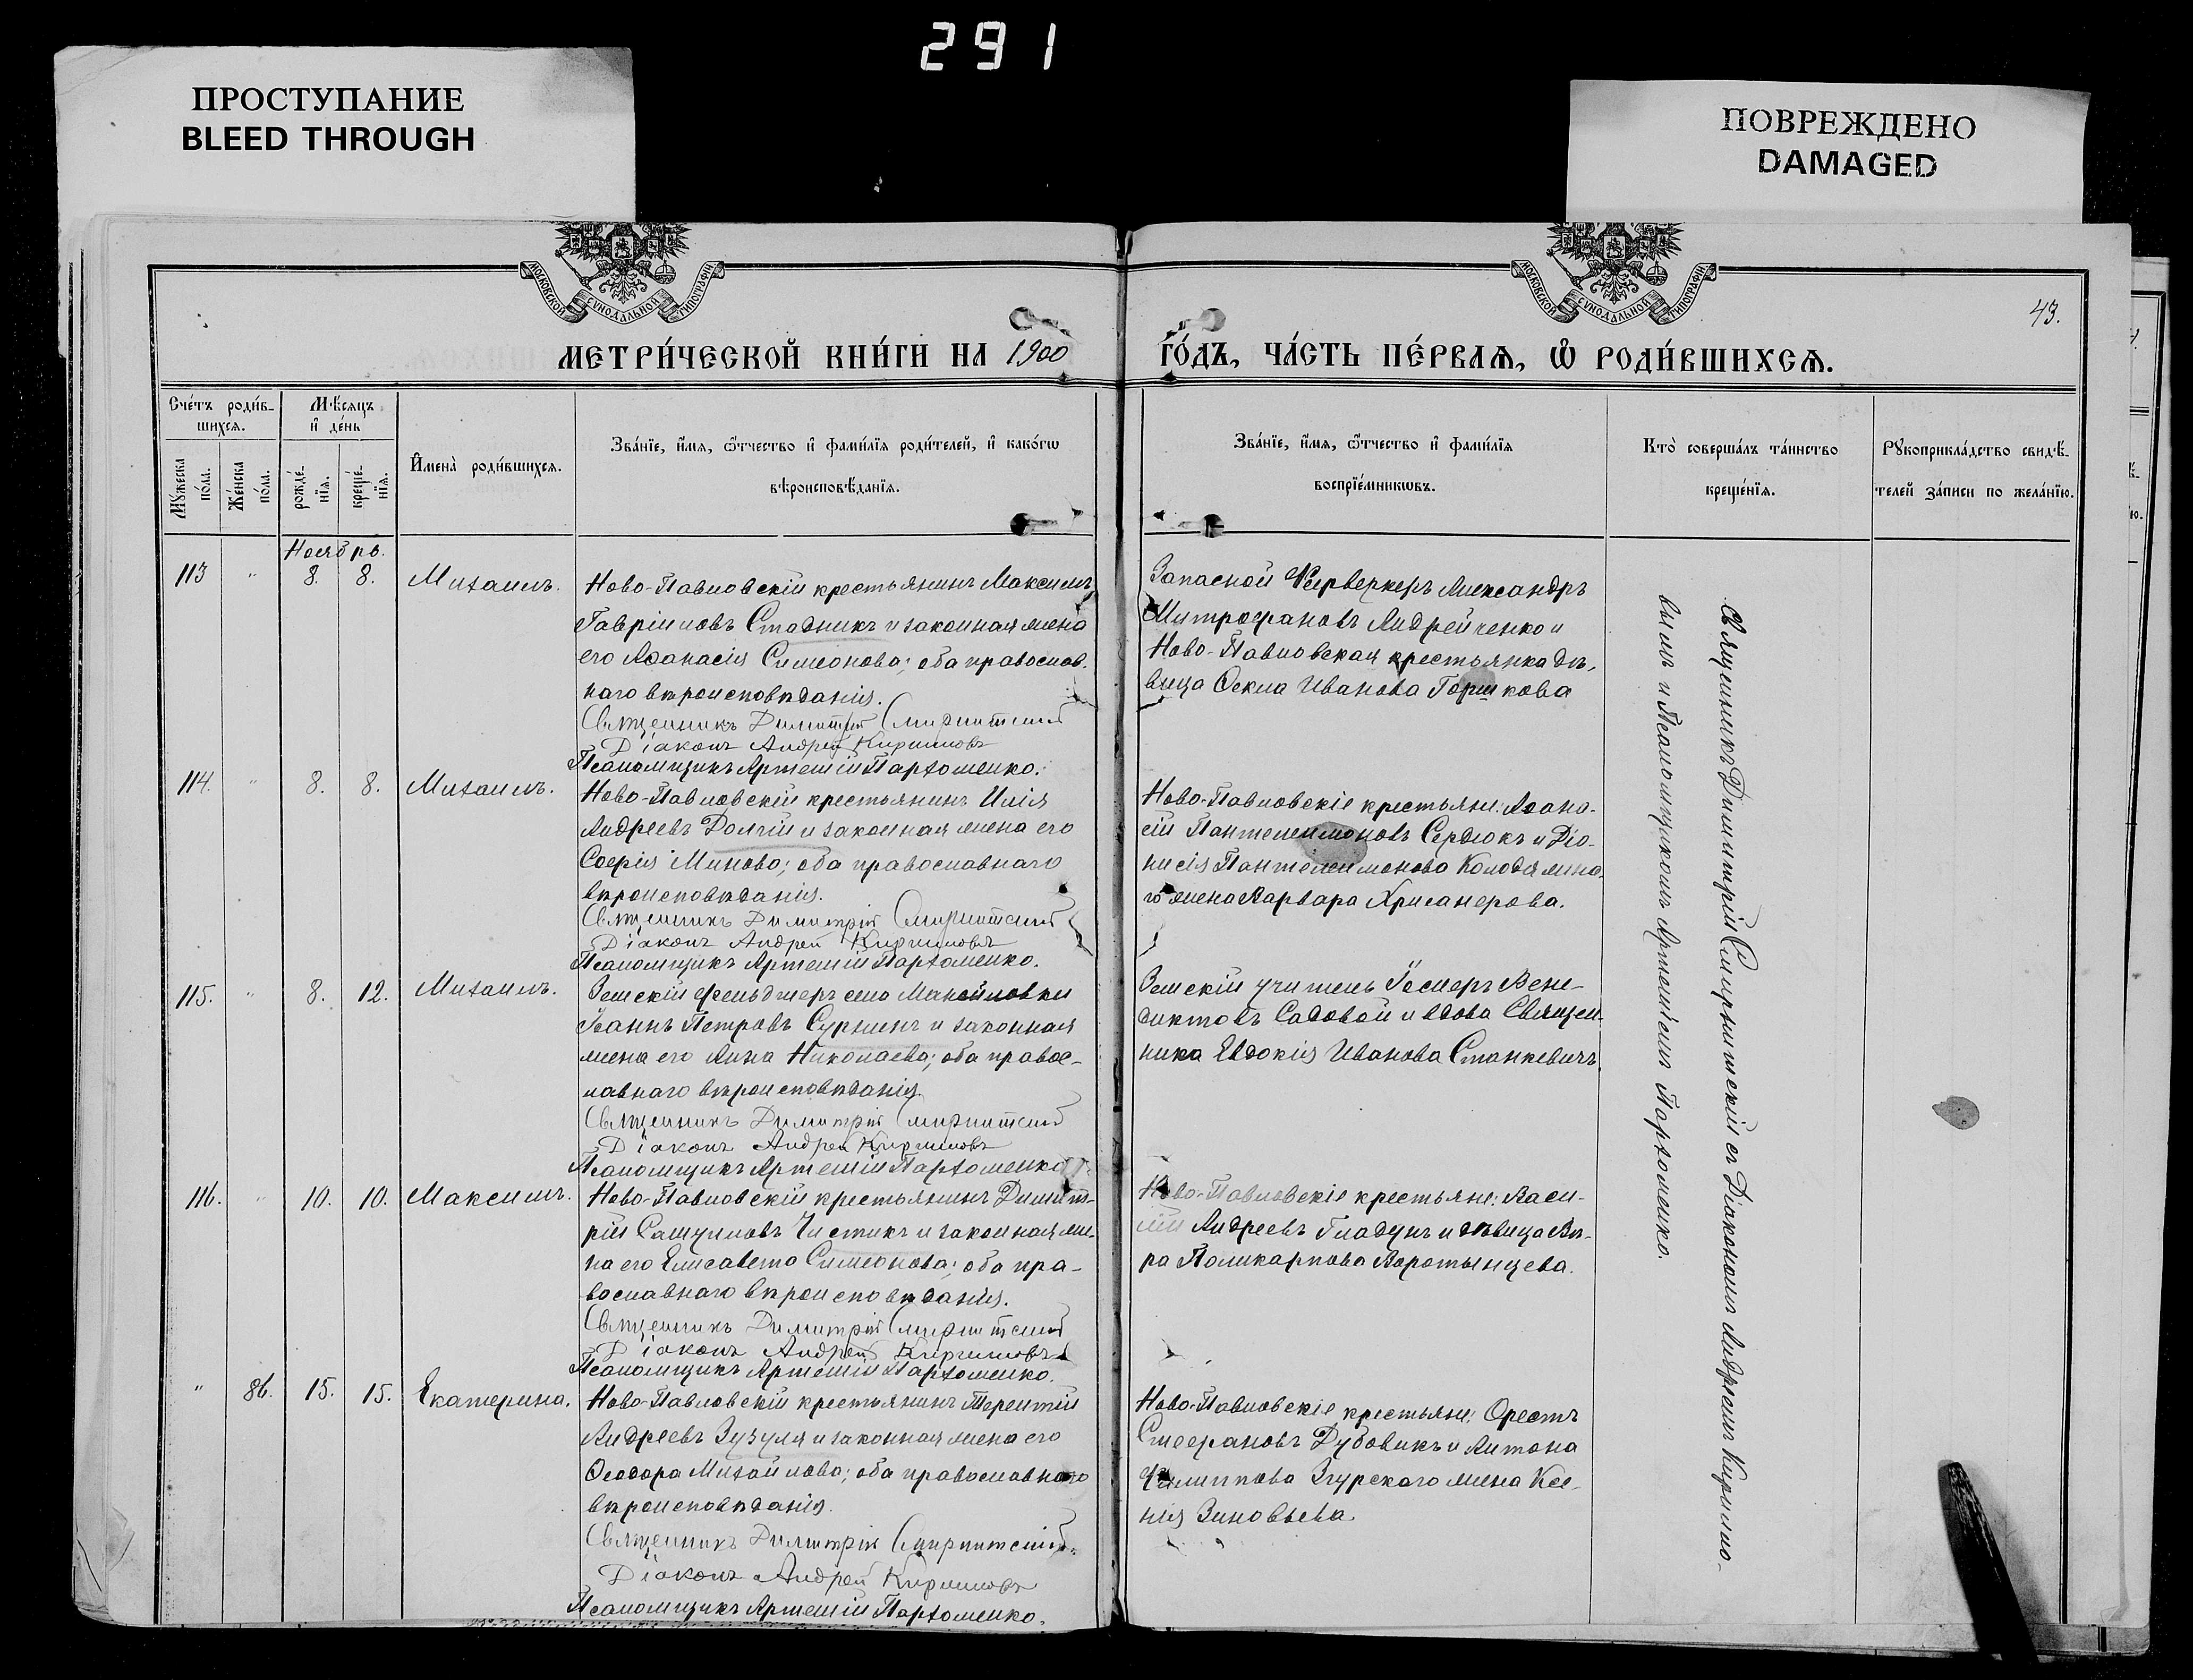 291
ПРОСТУПАНИЕ
BLEED THROUGH
ПОВРЕЖДЕНО
DAMAGED
МОСКОВСКОЙ СѴНОДАЛЬНОЙ ТИПОГРАФІИ
МОСКОВСКОЙ СѴНОДАЛЬНОЙ ТИПОГРАФІИ
43.
МЕТРИ́ЧЕСКОЙ КНИ́ГИ НА 1900 ГО́ДЪ, ЧА́СТЬ ПЕ́РВАѦ, Ѡ҆ РОДИ́ВШИХСѦ.
Сче́тъ роди́в-
шихсѧ.
Мꙋ́жеска по́ла.
Же́нска по́ла.
Мѣ́сѧцъ
и҆ де́нь
рожде́-нїѧ.
креще́-нїѧ.
И҆мена̀ роди́вшихсѧ.
Зва́нїе, и҆́мѧ, ѻ҆́тчество и҆ фами́лїѧ роди́телей, и҆ како́гѡ
вѣроисповѣ́данїѧ.
Зва́нїе, и҆́мѧ, ѻ҆́тчество и҆ фами́лїѧ
воспрїе́мникѡвъ.
Кто̀ соверша́лъ та́инство
креще́нїѧ.
Рꙋкоприкла́дство свидѣ́-
телей за́писи по жела́нїю.
Ноябрь.
113 " 8. 8. Михаилъ.
Ново-Павловскій крестьянинъ Максимъ
Гавріиловъ Стадникъ и законная жена
его Аѳанасія Симеонова; оба православ.
наго вѣроисповѣданія.
Священникъ Димитрій Смирнитскій
Діаконъ Андрей Кирилловъ
Псаломщикъ Артемій Пархоменко.
Запасной Фейрверкеръ Александръ
Митрофановъ Андрейченко и
Ново-Павловская крестьянка дѣ-
вица Ѳекла Иванова Горшкова
114. " 8. 8. Михаилъ.
Ново-Павловскій крестьянинъ Илія
Андреевъ Долгій и законная жена его
Софія Минова; оба православнаго
вѣроисповѣданія.
Священникъ Димитрій Смирнитскій
Діаконъ Андрей Кирилловъ
Псаломщикъ Артемій Пархоменко.
Ново-Павловскіе крестьяне: Аѳана-
сій Пантелеимоновъ Сердюкъ и Діо-
нисія Пантелеимонова Колодяжна-
го жена Варвара Хрисанфова.
115. " 8. 12. Михаилъ.
Земскій фельдшеръ села Манойловки
Іоаннъ Петровъ Сурженъ и законная
жена его Анна Николаева; оба правос-
лавнаго вѣроисповѣданія.
Священникъ Димитрій Смирнитскій
Діаконъ Андрей Кирилловъ
Псаломщикъ Артемій Пархоменко.
Земскій учитель Вене-
диктовъ Садовой и вдова Священ-
ника Евдокія Иванова Станкевичъ.
116. " 10. 10. Максимъ.
Ново-Павловскій крестьянинъ Димит-
рій Самуиловъ Чистикъ и законная же-
на его Елисавета Симеонова; оба пра-
вославнаго вѣроисповѣданія.
Священникъ Димитрій Смирнитскій
Діаконъ Андрей Кирилловъ
Псаломщикъ Артемій Пархоменко.
Ново-Павловскіе крестьяне: Васи-
лій Андреевъ Гладунъ и дѣвица Вѣ-
ра Поликарпова Воротынцева.
" 86. 15. 15. Екатерина.
Ново-Павловскій крестьянинъ Терентій
Андреевъ Зузуля и законная жена его
Ѳеодора Михайлова; оба православнаго
вѣроисповѣданія.
Священникъ Димитрій Смирнитскій
Діаконъ Андрей Кирилловъ
Псаломщикъ Артемій Пархоменко.
Ново-Павловскіе крестьяне: Орестъ
Стефановъ Дубовикъ и Антона
Филиппова Згурскаго жена Ксе-
нія Зиновьева
Священникъ Димитрій Смирнитскій съ Діакономъ Андреемъ Кирилло-
вымъ и Псаломщикомъ Артеміемъ Пархоменко.